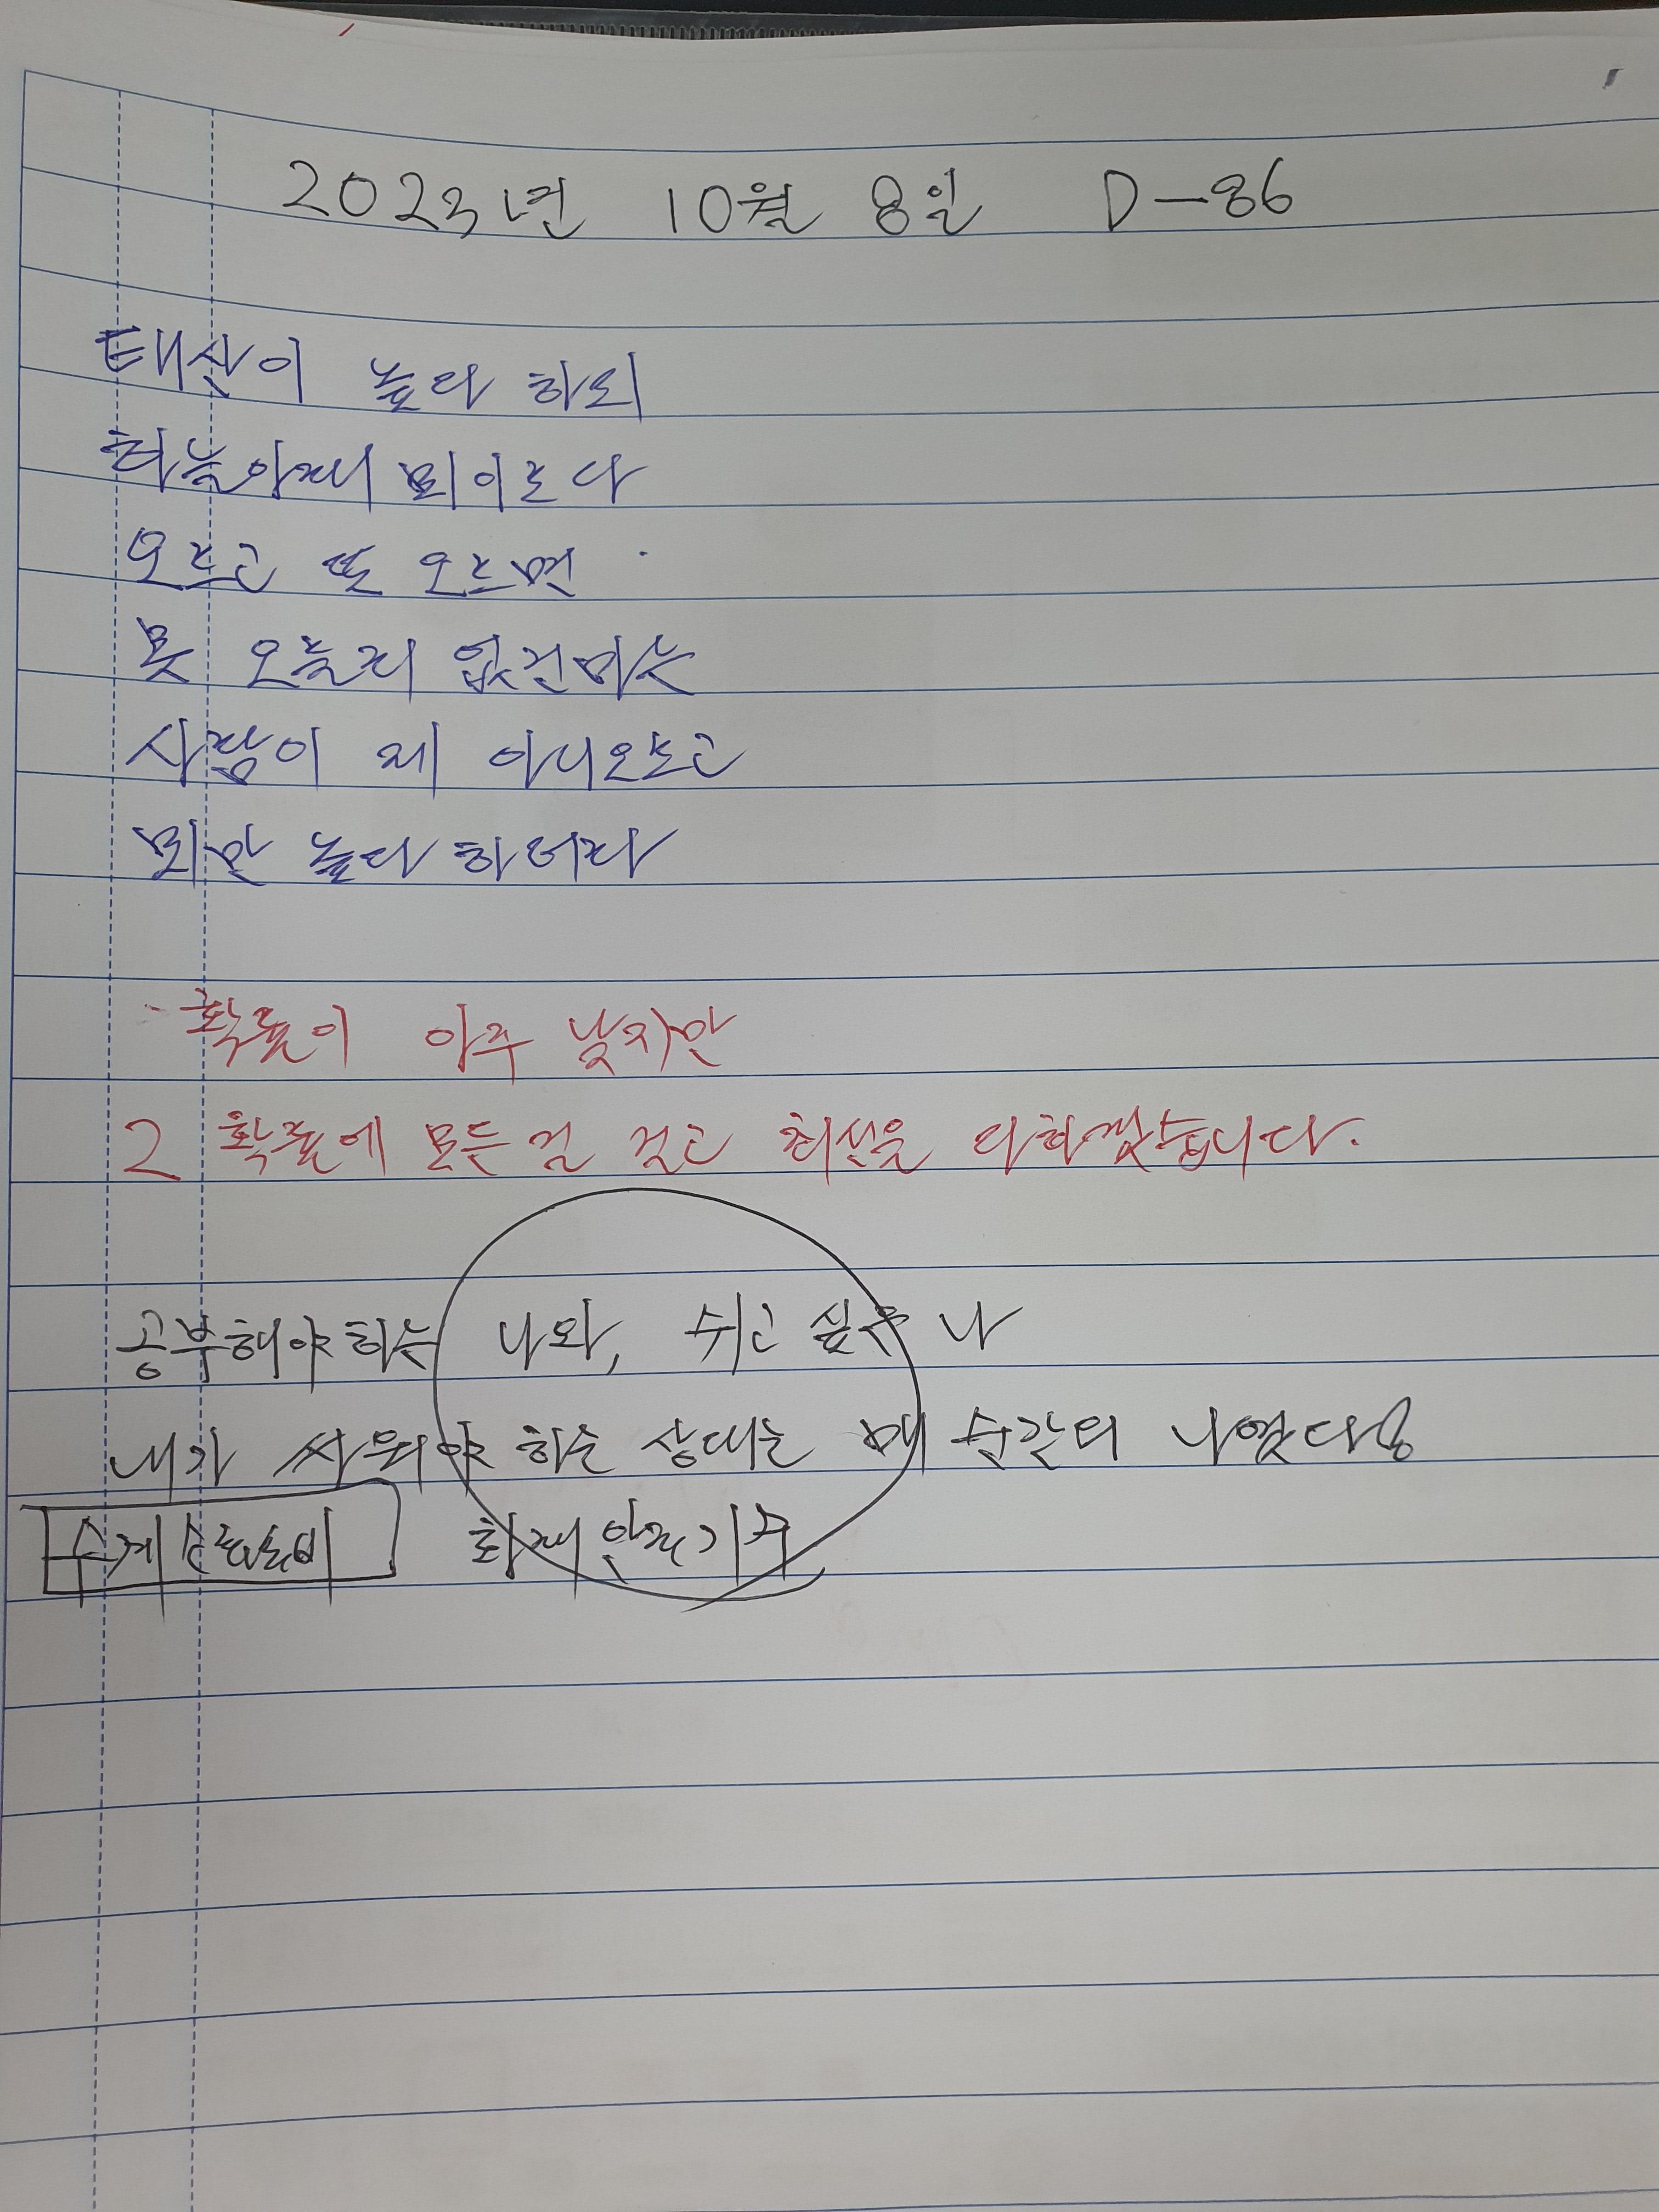 2023년 10월 8일 D-86
태산이 높다 하되
하늘아래 뫼이로다
오르고 또 오르면
못 오를리 없건마는
사람이 제 아니오르고
뫼만 높다 하더라
확률이 아주 낮지만
그 확률에 모든걸 걸고 최선을 다하겠습니다.
공부해야하는 나와, 쉬고 싶은 나
내가 싸워야 하는 상대는 매 순간의 나였다
화재안전기준